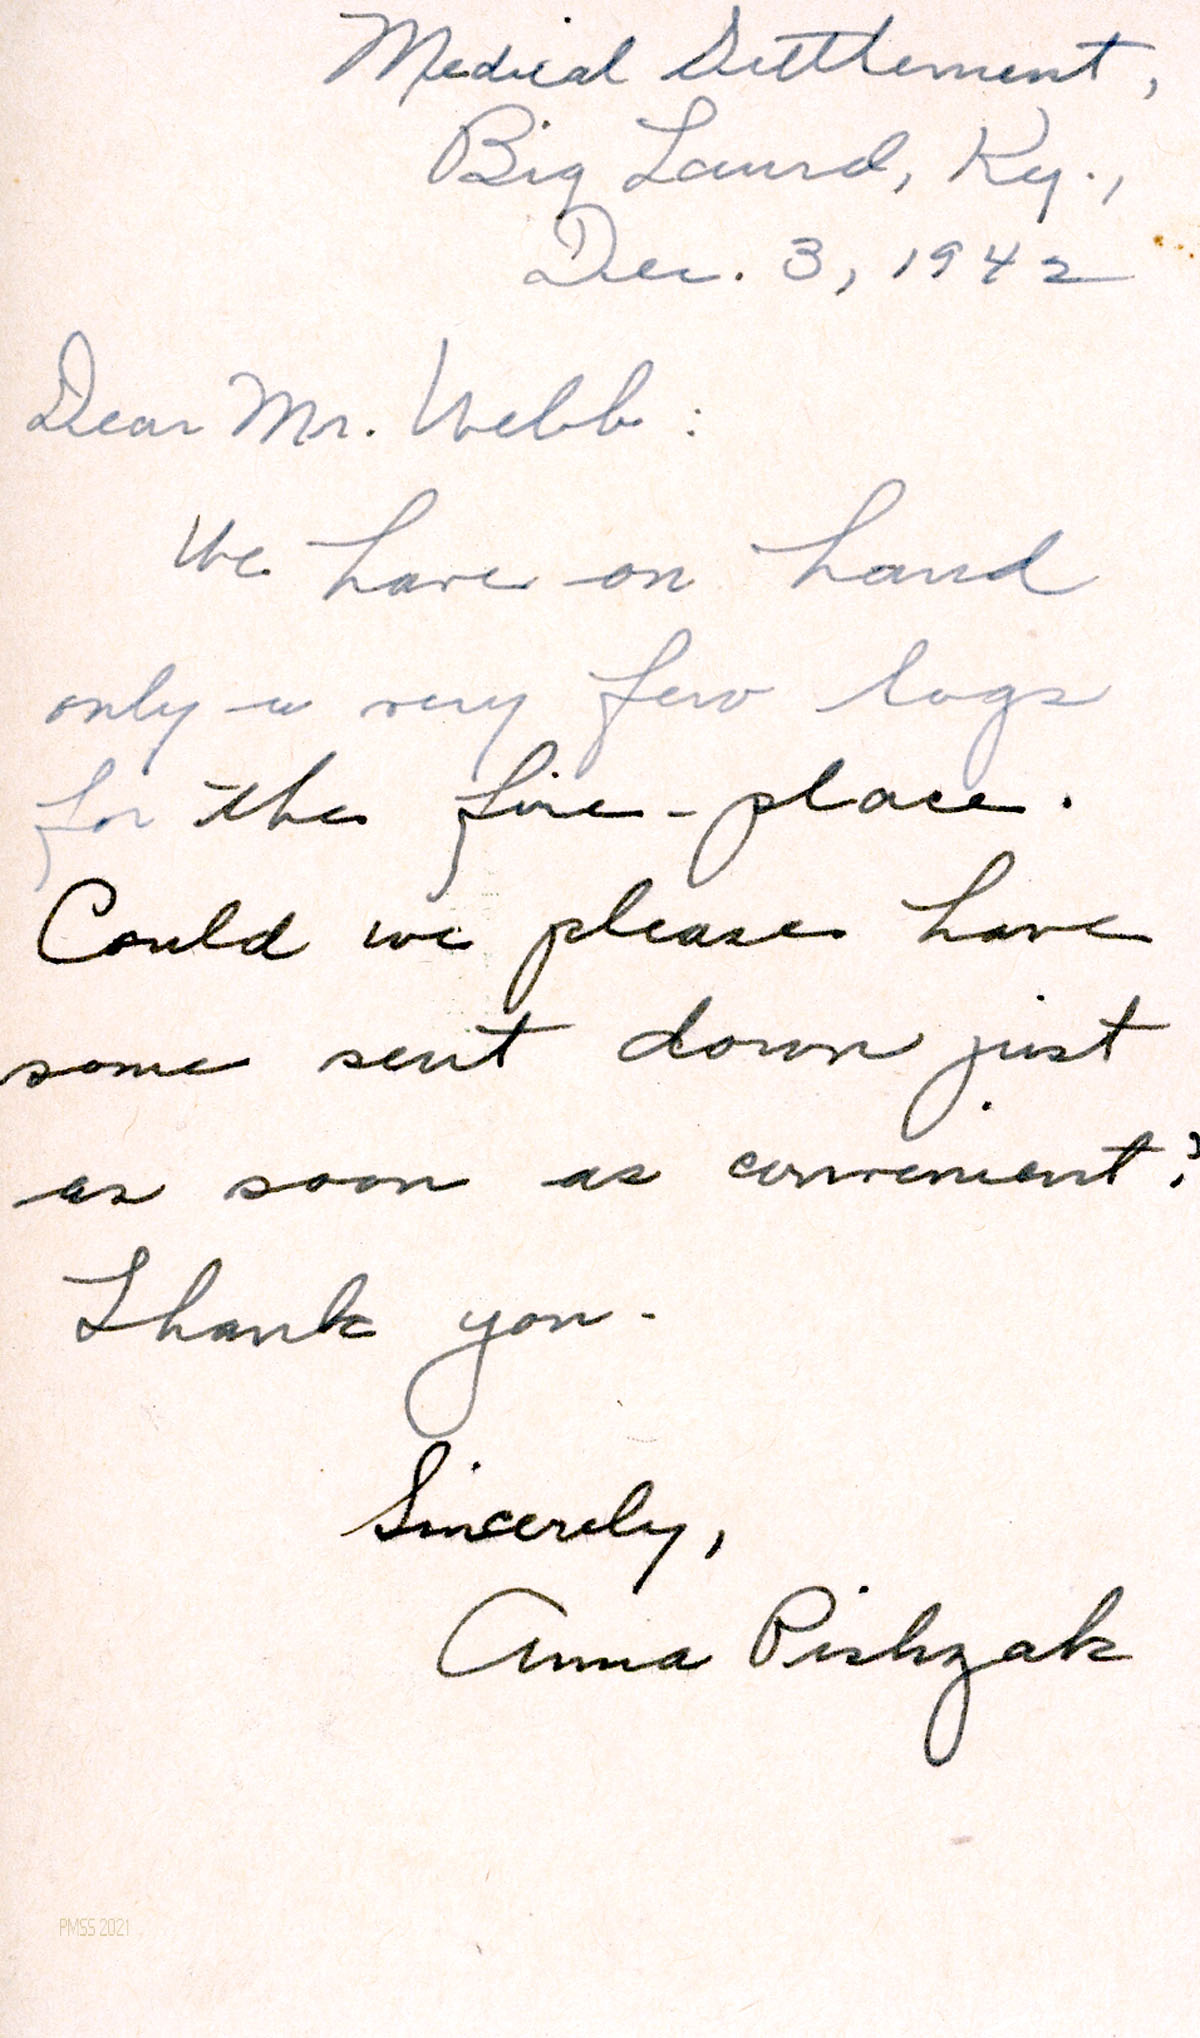 Medical Settlement,
Big Laurel, Ky.,
Dec. 3, 1942
Dear Mr. Webb:
We have on hand
only a very few logs
for the fire-place.
Could we please have
some sent down just
as soon as convenient?
Thank you.
Sincerely,
Anna Pishzak
PMSS 2021